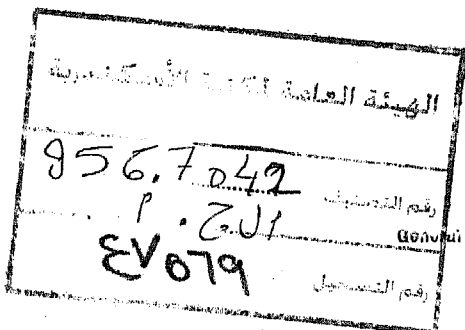 الهيئة العامة لمكتبة الأسكندرية
956.7042
رقم التصنيف
ال ج . م
رقم التسجيل
٤٧٥٦٩